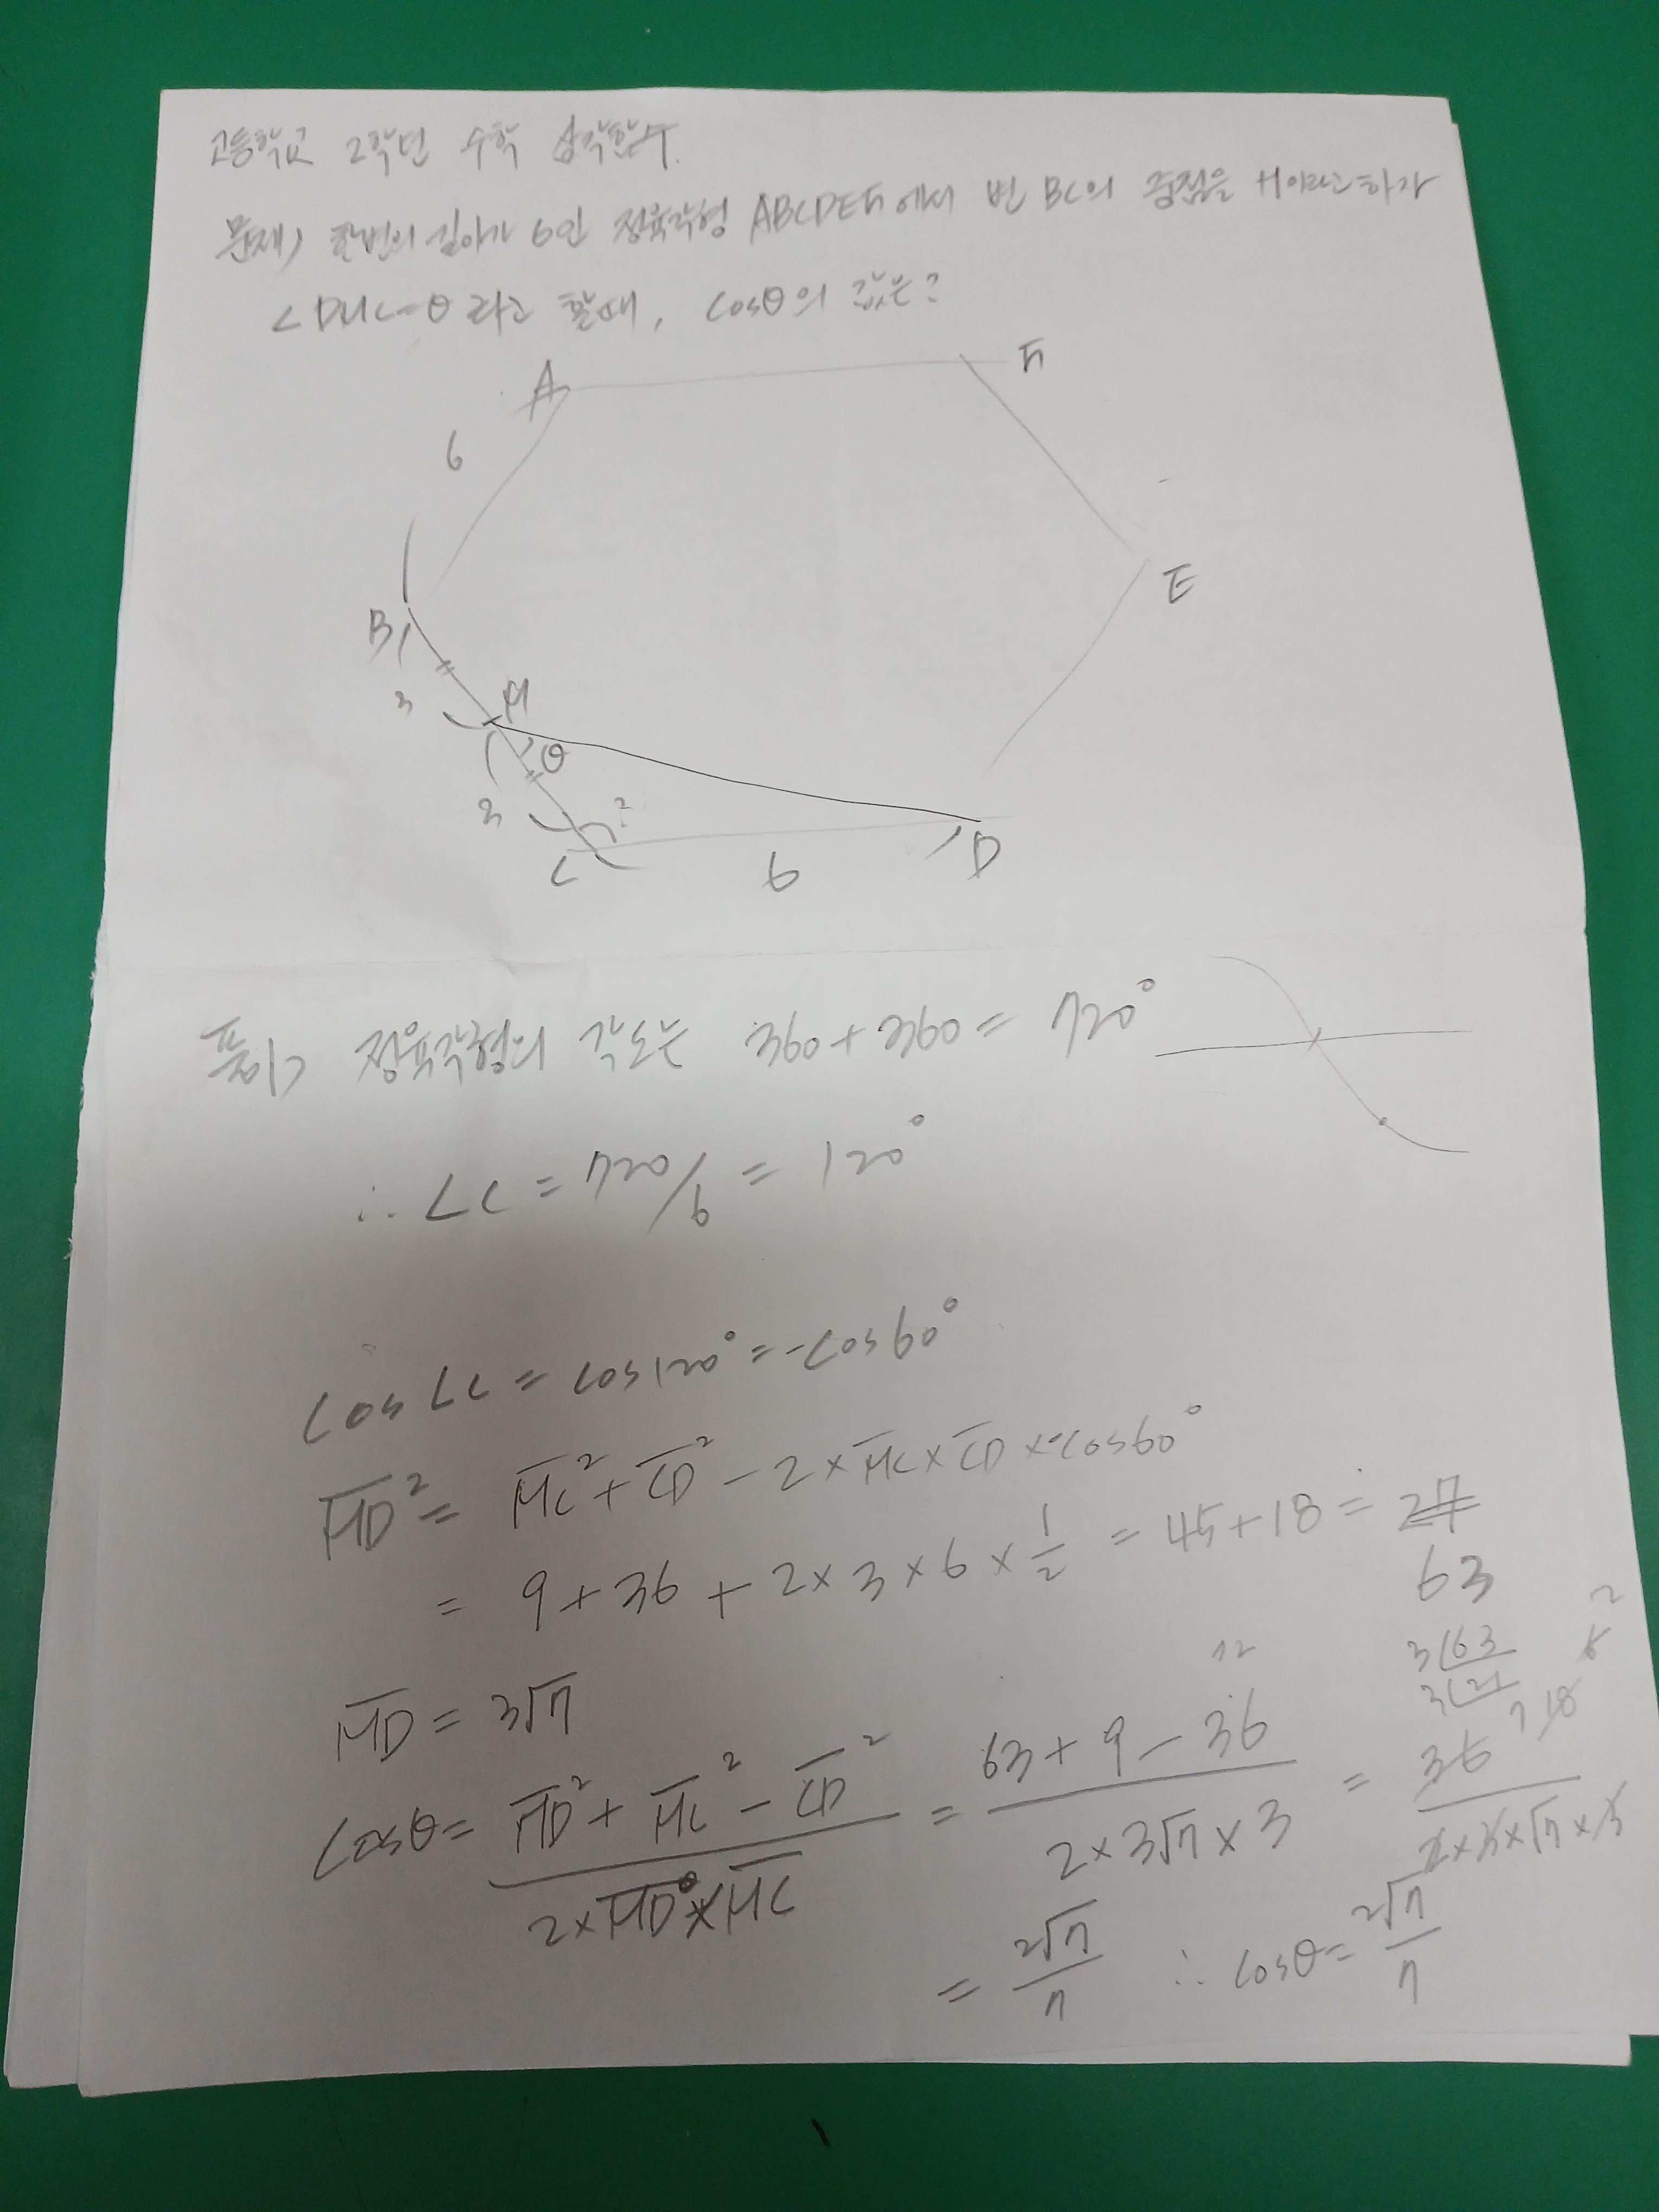 고등학교 2학년 수학 삼각함수.
문제) 한변의 길이가 6인 정육각형 ABCDEF에서 변 BC의 중점을 M이라고하자
∠DMC=θ 라고 할때, cosθ의 값은?
A
F
6
E
B
3
M
θ
3
?
C
6
D
풀이> 정육각형의 각도는 360+360= 720°
∴ ∠C = 720/6 = 120°
cos∠C = cos120° = -cos60°
MD² = MC² + CD² - 2×MC×CD×-cos60°
= 9+36+2×3×6×1/2 = 45+18 = 27
63
3 63
3 21
7
MD = 3√7
cosθ = (MD²+MC²-CD²)/(2×MD×MC) = (63+9-36)/(2×3√7×3) = 36/(2×3×√7×3)
12
18
6
2
= 2√7/7 ∴ cosθ = 2√7/7